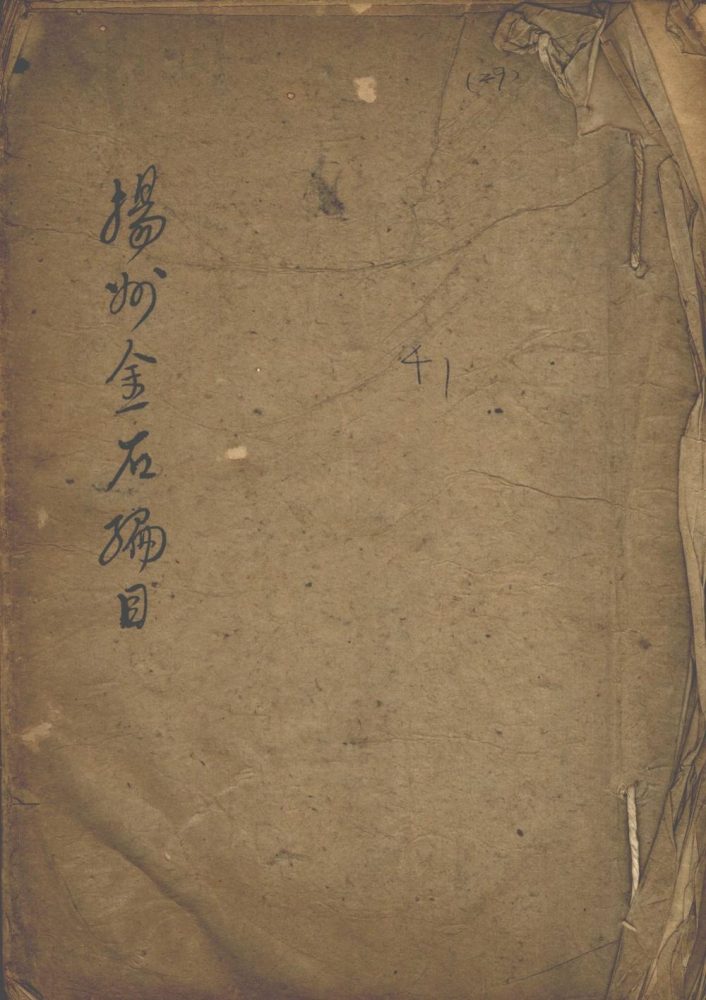 揚州金石編目
(29)
41